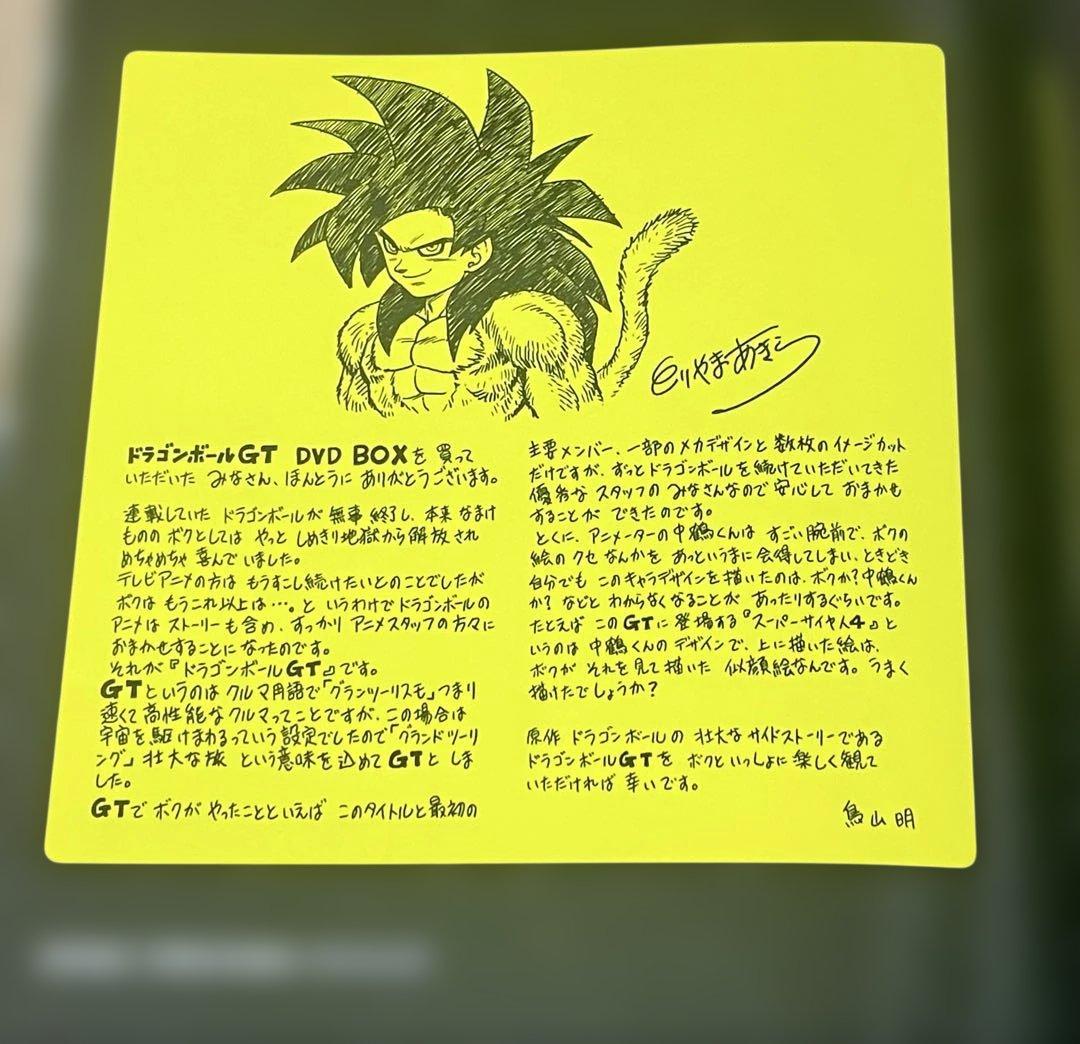 とりやまあきら
ドラゴンボールGT DVD BOXを買って
いただいた みなさん、ほんとうに ありがとうございます。
連載していた ドラゴンボールが 無事 終了し、本来 なまけ
ものの ボクとしては やっと しめきり地獄から解放され
めちゃめちゃ 喜んで いました。
テレビアニメの方は もうすこし続けたいとのことでしたが
ボクは もうこれ以上は…。と いうわけで ドラゴンボールの
アニメは ストーリーも含め、すっかり アニメスタッフの方々に
おまかせすることに なったのです。
それが『ドラゴンボールGT』です。
GTというのは クルマ用語で「グランツーリスモ」つまり
速くて 高性能な クルマってことですが、この場合は
宇宙を駆けまわるっていう設定でしたので「グランドツーリ
ング」壮大な旅 という意味を込めて GTと しま
した。
GTで ボクが やったことといえば このタイトルと最初の
主要メンバー、一部のメカデザインと 数枚の イメージカット
だけですが、ずっとドラゴンボールを続けていただいてきた
優秀な スタッフの みなさんなので 安心して おまかせ
することが できたのです。
とくに、アニメーターの中鶴くんは すごい腕前で、ボクの
絵の クセ なんかを あっというまに会得してしまい、ときどき
自分でも このキャラデザインを描いたのは、ボクか?中鶴くん
か? などと わからなくなることが あったりするぐらいです。
たとえば このGTに 登場する『スーパーサイヤ人4』と
いうのは 中鶴くんの デザインで、上に描いた絵は、
ボクが それを見て描いた 似顔絵なんです。うまく
描けたでしょうか?
原作 ドラゴンボールの 壮大な サイドストーリーである
ドラゴンボールGTを ボクといっしょに 楽しく観て
いただければ 幸いです。
鳥山明